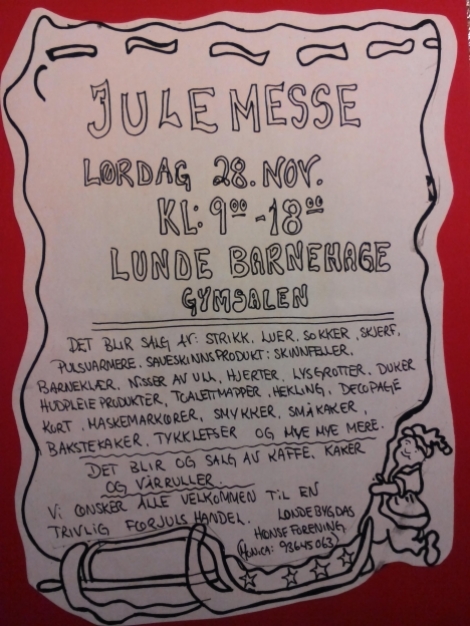 JULEMESSE
LØRDAG 28. NOV.
KL: 9⁰⁰ - 18⁰⁰
LUNDE BARNEHAGE
GYMSALEN
DET BLIR SALG AV: STRIKK, LUER, SOKKER, SKJERF,
PULSVARMERE, SAUESKINNSPRODUKT: SKINNFELLER,
BARNEKLÆR, NISSER AV ULL, HJERTER, LYSGROTTER, DUKER
HUDPLEIEPRODUKTER, TOALETTMAPPER, HEKLING, DECOPAGE
KORT, MASKEMARKØRER, SMYKKER, SMÅKAKER,
BAKSTEKAKER, TYKKLEFSER OG MYE MYE MERE.
DET BLIR OG SALG AV KAFFE, KAKER
OG VÅRRULLER.
VI ØNSKER ALLE VELKOMMEN TIL EN
TRIVLIG FØRJULSHANDEL. LUNDEBYGDAS
HØNSEFORENING
(MONICA: 93645063)